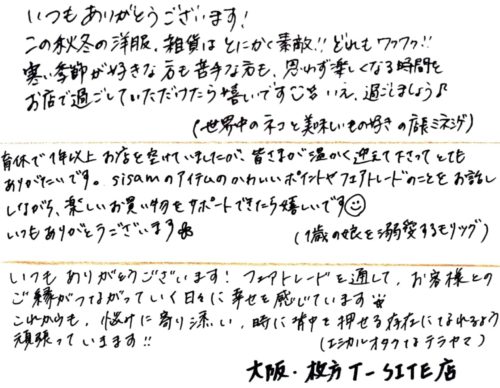 いつもありがとうございます!
この秋冬の洋服、雑貨はとにかく素敵!! どれもワクワク!!
寒い季節が好きな方も苦手な方も、思わず楽しくなる時間を
お店で過ごしていただけたら嬉しいです いえ、過ごしましょう♪
(世界中のネコと美味しいもの好きの店長ミネシゲ)
育休で1年以上お店を空けていましたが、皆さまが温かく迎えて下さってとても
ありがたいです。sisamのアイテムのかわいいポイントやフェアトレードのことをお話し
しながら、楽しいお買い物をサポートできたら嬉しいです
いつもありがとうございます
(1歳の娘を溺愛するモリッグ)
いつもありがとうございます! フェアトレードを通して、お客様との
ご縁がつながっていく日々に幸せを感じています
これからも、悩みに寄り添い、時に背中を押せる存在になれるよう
頑張っていきます!!
(エシカルオタクなテラヤマ)
大阪・枚方T-SITE店